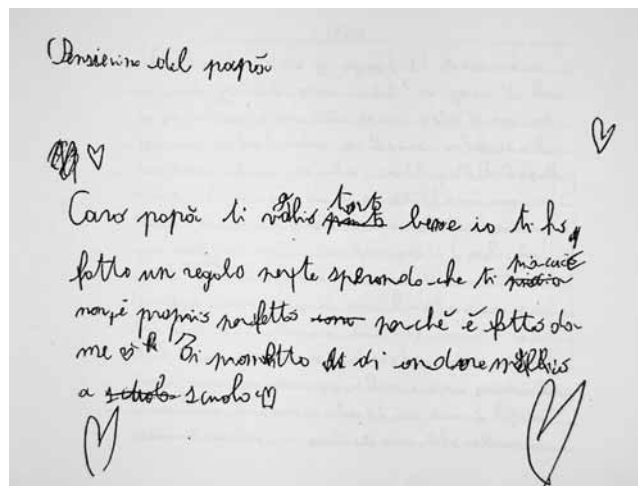 Pensierino del papà
Caro papà ti voglio tanto bene io ti ho
fatto un regalo per te sperando che ti piace
non è proprio perfetto perchè è fatto da
me Ti prometto di andare meglio
a scuola